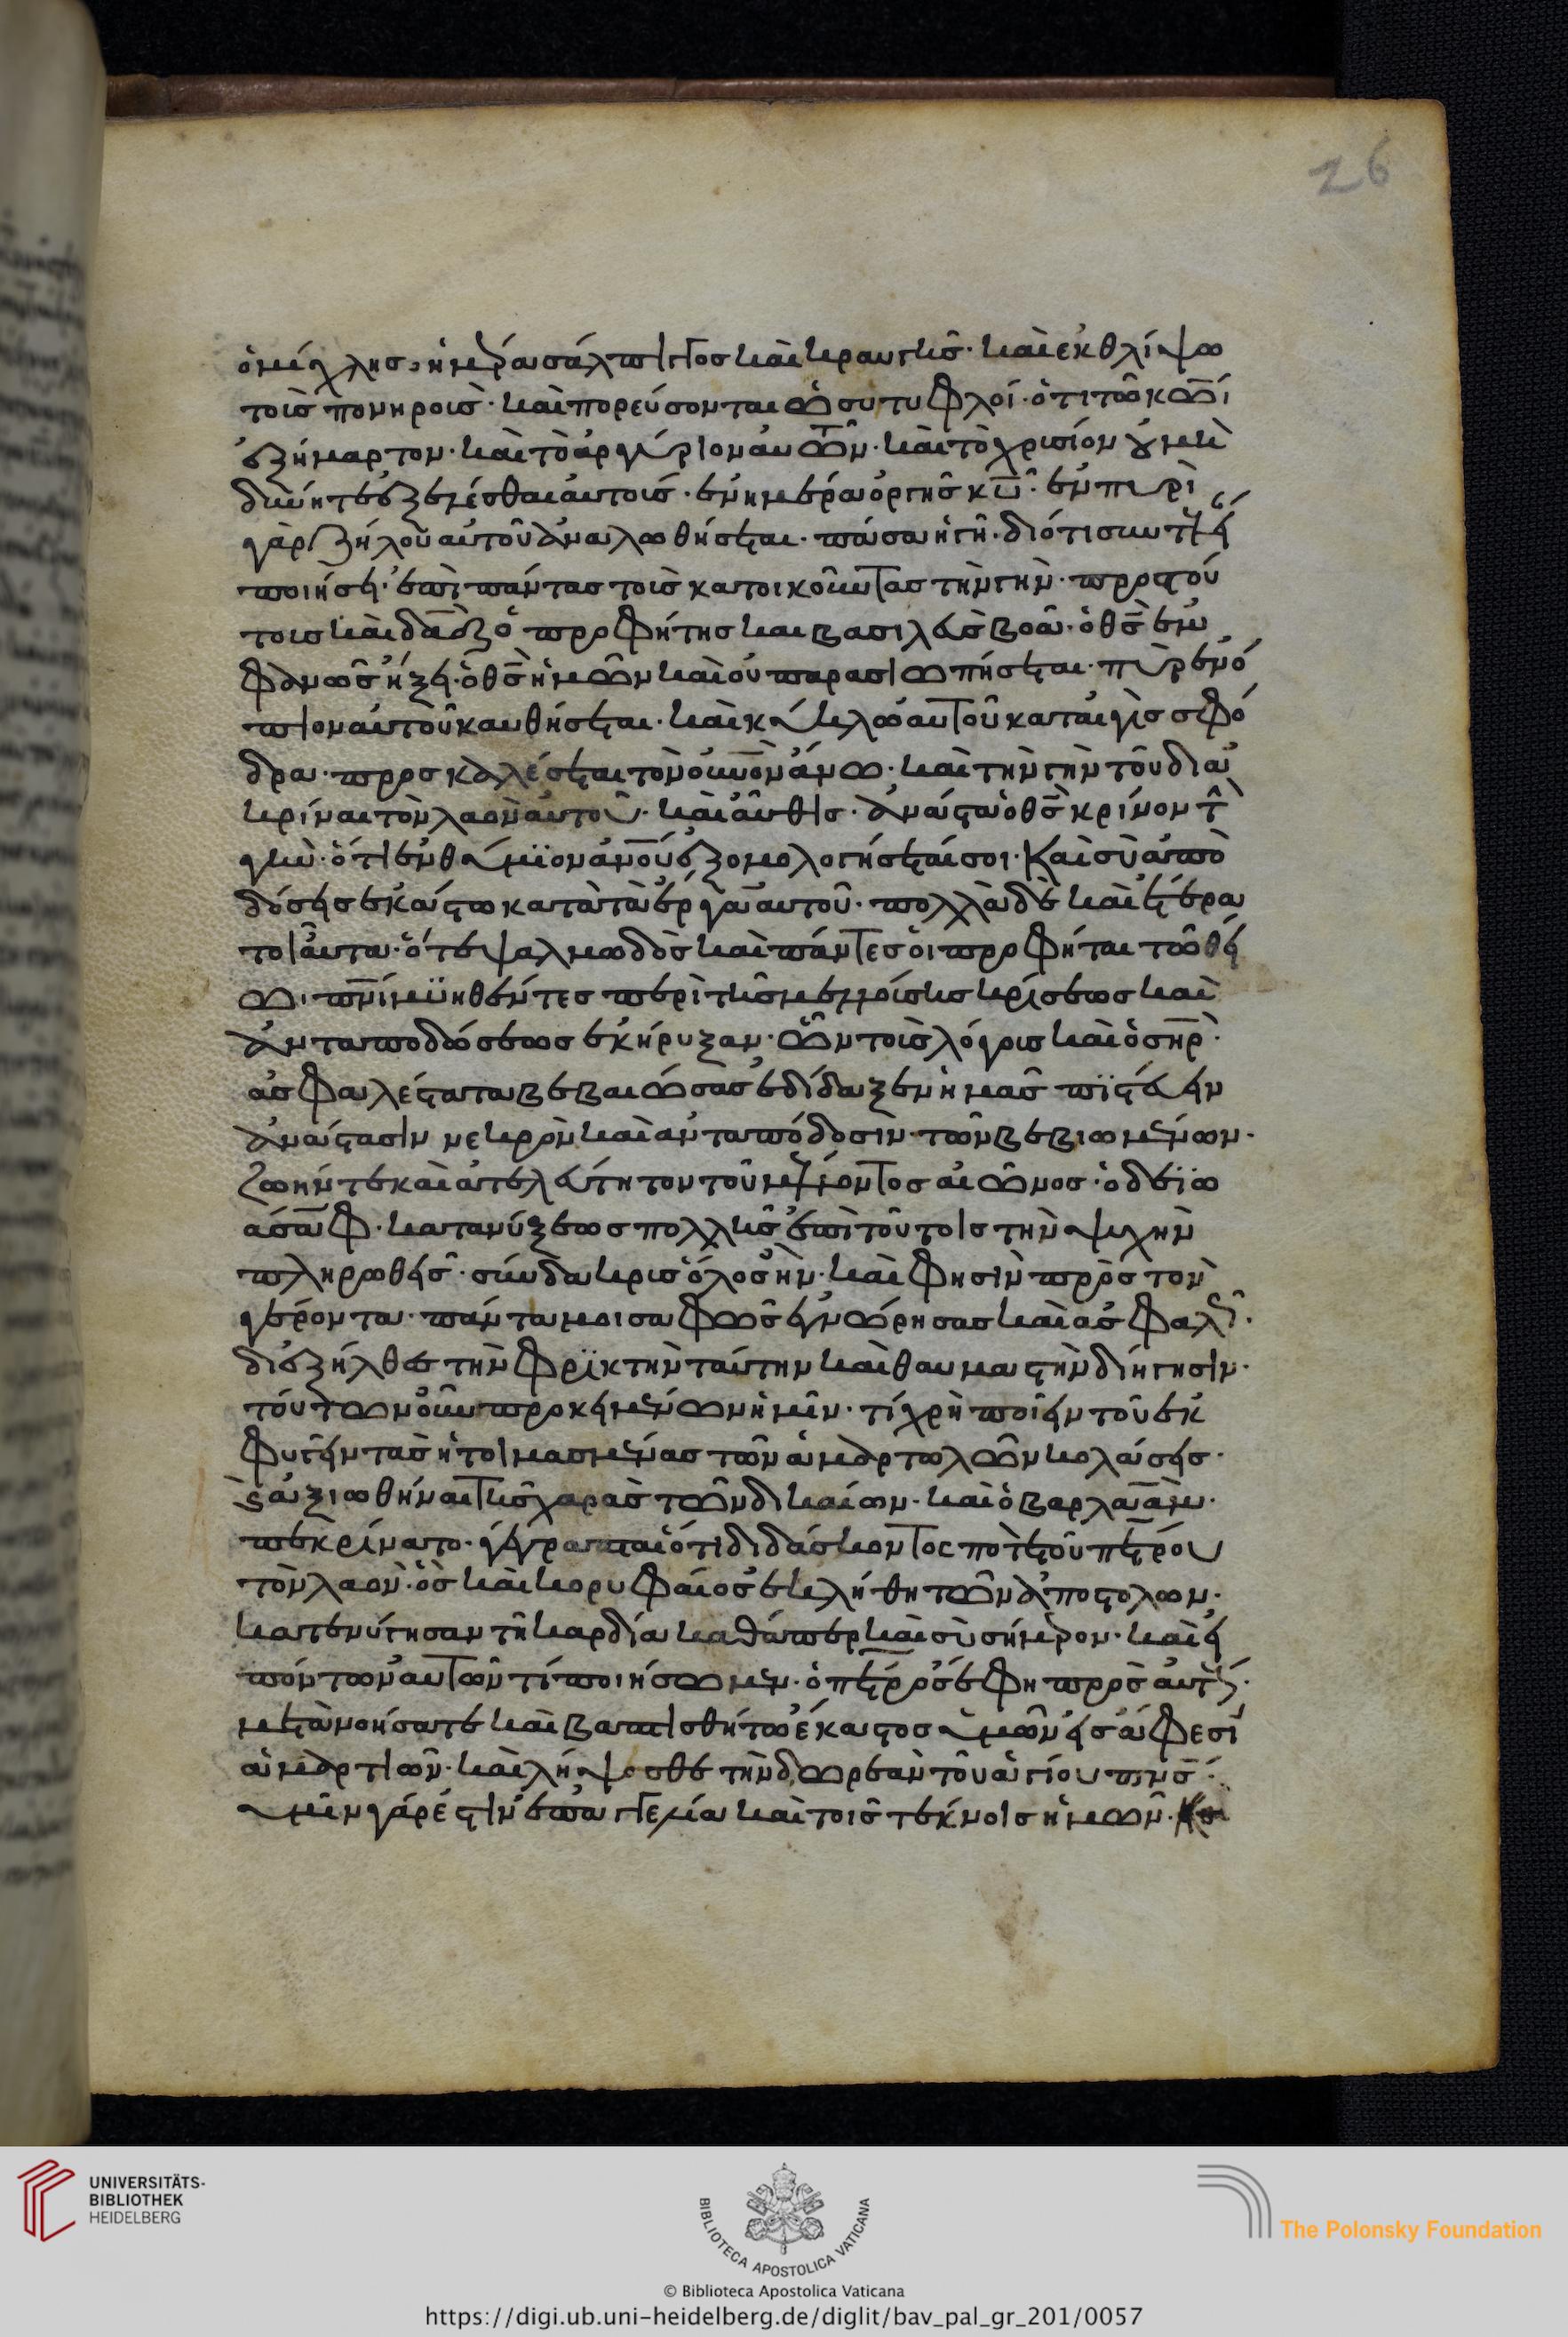 26
ὁμίχλης, ἡμέρα σάλπιγγος καὶ κραυγῆς· καὶ ἐκθλίψω
τοὺς πονηροὺς· καὶ πορεύσονται ὡς τυφλοί· ὅτι τῶ κω̅ ἱ
ἐξήμαρτον· καὶ τὸ ἀργύριον αὐτῶν· καὶ τὸ χρυσίον οὐ μὴ
δύνητε ἐξελέσθαι αὐτοὺς· ἐν ἡμέρα ὀργῆς κυ̅· ἐν πυρὶ
γὰρ ζήλου αὐτοῦ ἀναλωθήσεται· πᾶσα ἡ γῆ· διότι συντέλει
ποιήσει· ἐπὶ πάντας τοὺς κατοικοῦντας τὴν γὴν· πρὸς τού
τοις καὶ δα̅δ ὁ προφήτης καὶ βασιλεὺς βοᾶ· ὁ θς̅ ἐμ
φανῶς ἥξει· ὁ θς̅ ἡμῶν καὶ οὐ παρασιωπήσεται· πῦρ ἐνώ
πιον αὐτοῦ καυθήσεται· καὶ κύκλω αὐτοῦ καταιγὶς σφό
δρα· προσκαλέσεται τὸν οὐνο̅ν ἄνω· καὶ τὴν γὴν τοῦ δια
κρίναι τὸν λαὸν αὐτοῦ· καὶ αὖθις· ἀνάστα ὁ θς̅ κρίνον τ
γὴν· ὅτι ἐνθύμιον ἀνο̅υ ἐξομολογήσεταί σοι· Καὶ σὺ ἀπο
δώσεις ἑκάστω κατὰ τὰ ἔργα αὐτοῦ· πολλὰ δὲ καὶ ἕτερα
τοιαῦτα· ὅ τε ψαλμωδὸς καὶ πάντες οἱ προφήται τῶ θεί
ω· πνι̅ μυηθέντες περὶ τῆς μελλούσης κρίσεως καὶ
ἀνταποδόσεως ἐκήρυξαν· ὧν τοὺς λόγους καὶ ὁ σηρ̅·
ἀσφαλέστατα βεβαιώσας ἐδίδαξεν ἡμᾶς πιστεύειν
ἀνάστασιν νεκρὸν καὶ ἀνταπόδοσιν· τῶν βεβιωμένων·
ζωήν τε καὶ ἀτελεύτητον τοῦ μέλλοντος αἰῶνος· ὁ δὲ ἰω
άσαφ· κατανύξεως πολλῆς ἐπὶ τούτοις τὴν ψυχὴν
πληρωθεὶς· σύνδακρυς ὅλος ἦν· καὶ φησὶν πρὸς τὸν
γέροντα· πάντα μοι σαφῶς ἐγνώρησας καὶ ἀσφαλῶς·
διεξῆλθες τὴν φρικτὴν ταύτην καὶ θαυμαστὴν διήγησιν·
τούτων οὖν προκειμένων ἡμῖν· τί χρὴ ποιεῖν τοῦ ἐκ
φυγεῖν τὰς ἡτοιμασμένας τῶν ἁμαρτωλῶν κολάσεις·
καὶ ἀξιωθῆναι τῆς χαρᾶς τῶν δικαίων· καὶ ὁ βαρλαὰμ·
πεκρίνατο· γέγραπται ὅτι διδάσκοντος ποτὲ τοῦ πέτρου
τὸν λαὸν· ὃς καὶ κορυφαῖος ἐκλήθη τῶν ἀποστόλων·
κατενύγησαν τῆ καρδία καθάπερ καὶ σὺ σήμερον· καὶ εἰ
πόντων αὐτῶν τί ποιήσωμεν· ὁ πέτρος ἔφη πρὸς αὐτούς·
μετανοήσατε καὶ βαπτισθήτω ἕκαστος ὑμῶν εἰς ἄφεσι
ἁμαρτιῶν· καὶ λήψεσθε τὴν δωρεὰν τοῦ ἁγίου πνς̅·
ὑμῖν γάρ ἐστιν ἐπαγγελία καὶ τοῖς τέκνοις ἡμῶν·
UNIVERSITÄTS-
BIBLIOTHEK
HEIDELBERG
BIBLIOTECA APOSTOLICA VATICANA
The Polonsky Foundation
© Biblioteca Apostolica Vaticana
https://digi.ub.uni-heidelberg.de/diglit/bav_pal_gr_201/0057